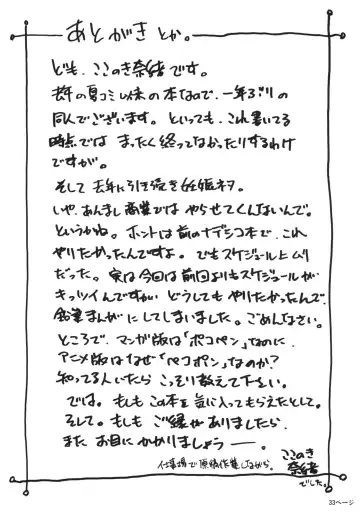 あとがきとか。
ども、ここのき奈緒です。
去年の夏コミ以来の本なので、一年ぶりの
同人でございます。といっても、これ書いてる
時点では まったく終ってなかったりするわけ
ですが。
そして 去年に引き続き妊娠ネタ。
いや、あんまし商業では やらせてくんないんで。
というかね。ホントは前のナデシコ本で、これ
やりたかったんですよ。でもスケジュール上ムリ
だった。実は今回は前回よりもスケジュールが
キッツイんですがい どうしてもやりたかったんで、
鉛筆まんがにしてしまいました。ごめんなさい。
ところで、マンガ版は「ポコペン」なのに、
アニメ版はなぜ「ペコポン」なのか?
知ってる人いたら こっそり教えて下さい。
では。もしも この本を気に入ってもらえたとして。
そして。もしも ご縁がありましたら、
また お目にかかりましょうー。
仕事場で原稿作業しながら。
ここのき
奈緒
でした。
33ページ